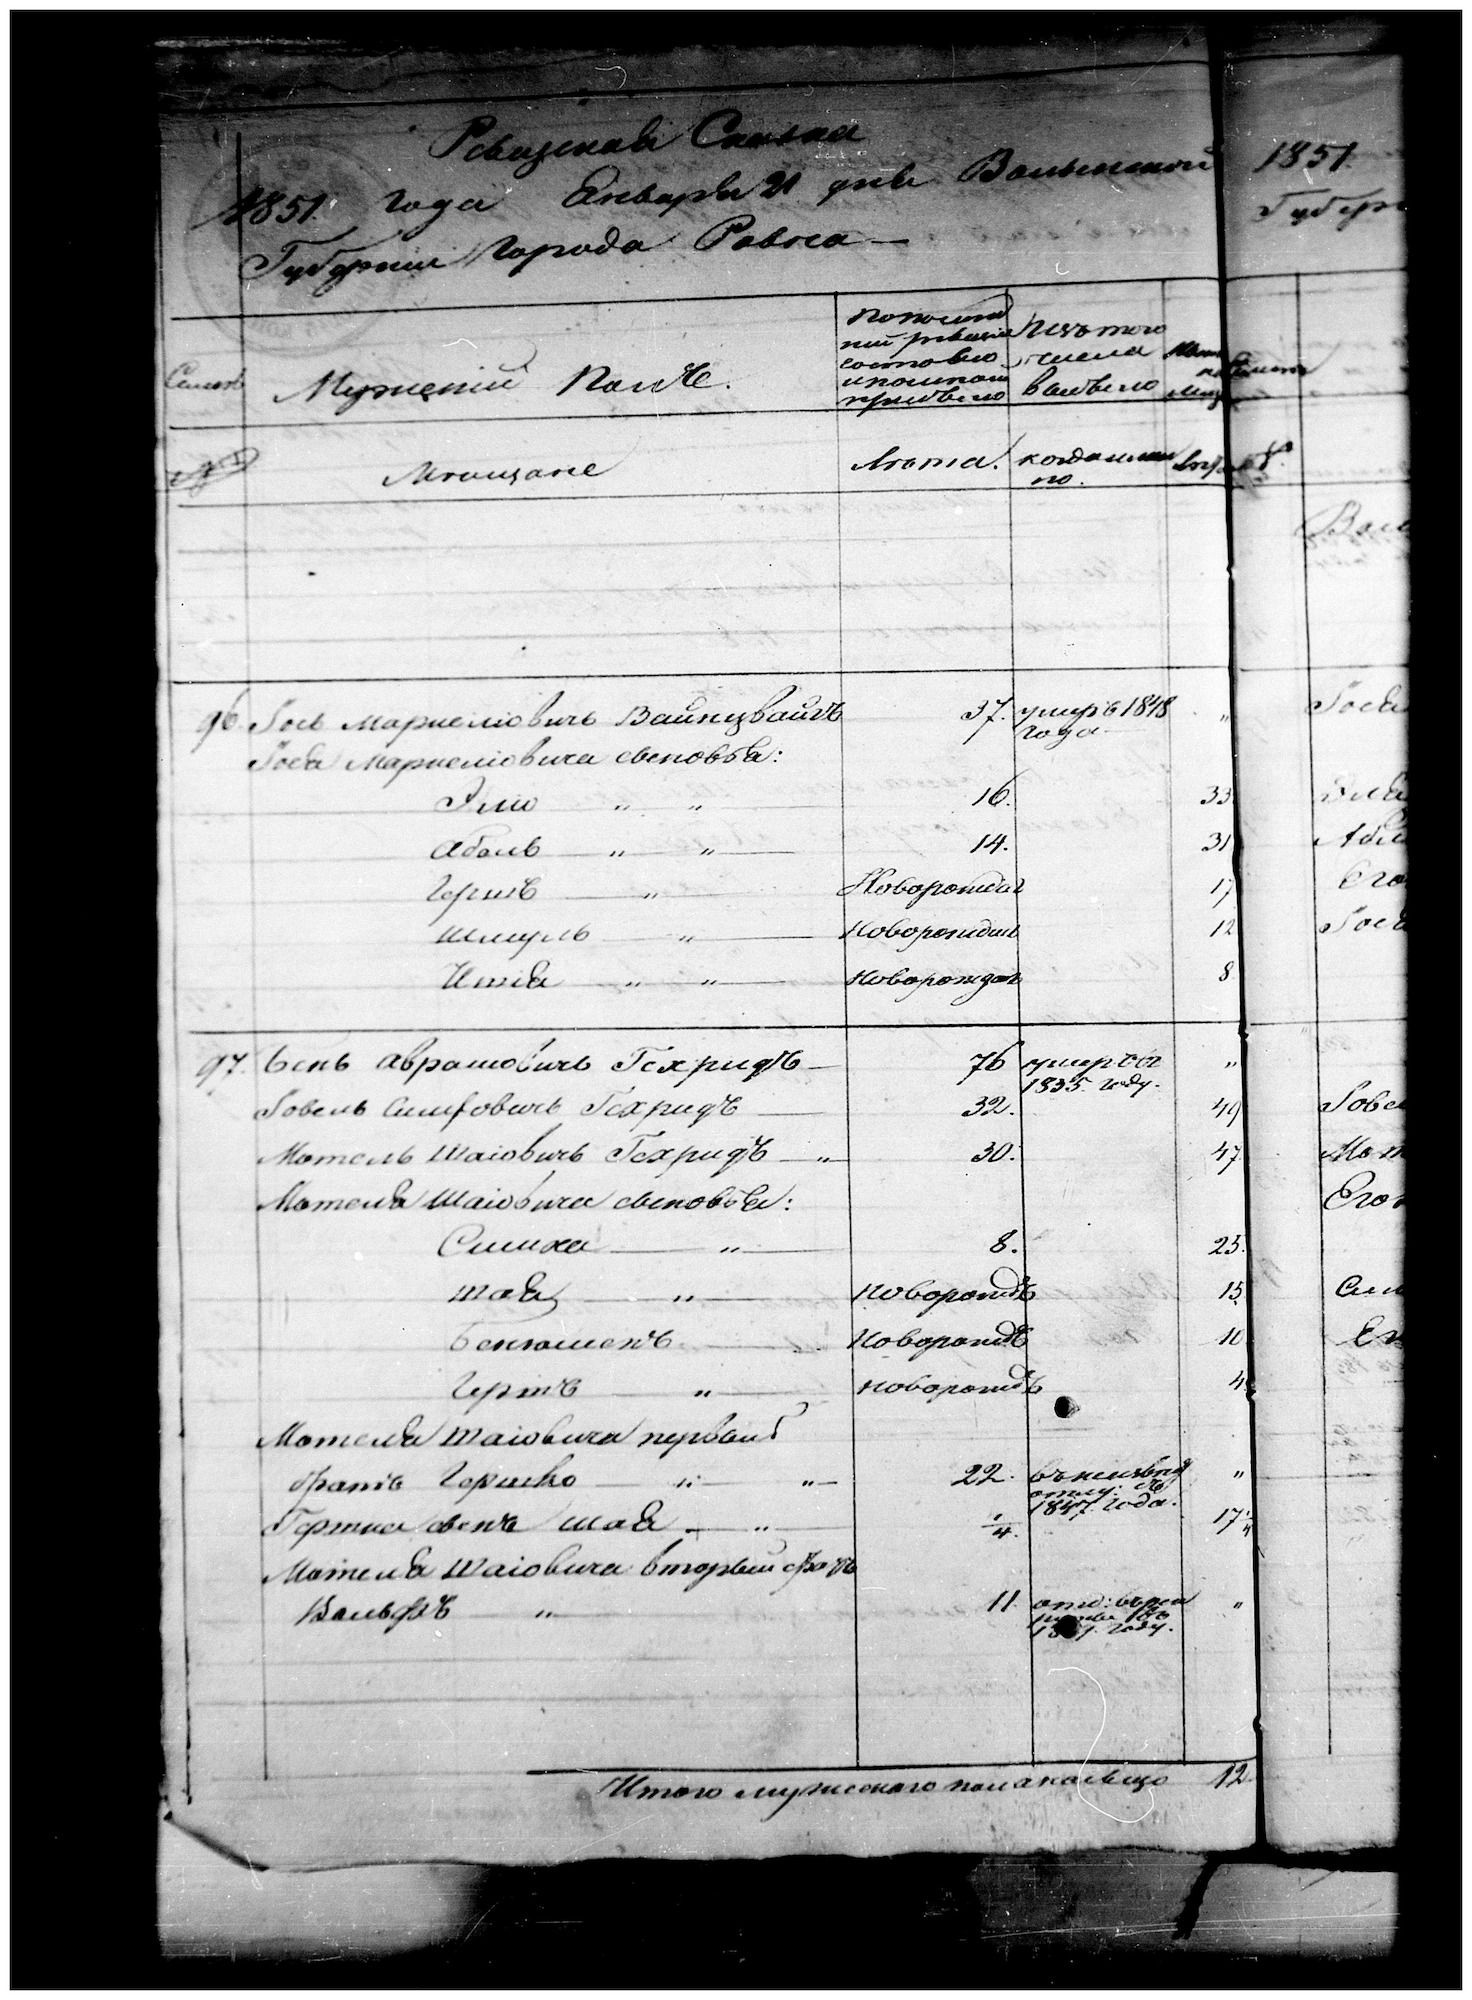 Ревизская Сказка
1851. года Января 21 дня Волынской
Губернии города Ровна —
Мужеский Полъ.
По послед
ней ревизии
состояло
и после того
прибыло
Изъ того
числа
выбыло
Мещане
Лета.
когда имен
но.
96. Іось Маркелиовичъ Вайнцвайгъ 37. умеръ 1848 "
года
Іося Маркелиовича сыновья:
Элио " " 16. 33.
Аболь " " 14. 31
Гершъ " Новорожден 17
Шмуль " Новорожден 12
Итя " " Новорожден 8
97. Бень Аврамовичъ Гехридъ — 76 умеръ въ "
1835. году.
Іовель Симховичъ Гехридъ 32. 49
Мотель Шаіовичъ Гехридъ — " 30. 47
Мотеля Шаіовича сыновья:
Симха " 8. 25.
Шая " Новорожд 15.
Беніоменъ Новорожд 10
Гершъ " новорожд 4.
Мотеля Шаіовича первый
братъ Гершко " " 22. въ неизвѣс "
отлу: съ
1847. года.
Гершка сынъ Шая — " 1/4. 17 1/4
Мотеля Шаіовича вторый братъ
Вольфъ " 11. отд: въ рек "
руты въ
году.
Итого мужескаго пола налицо 12.
1851.
Губер